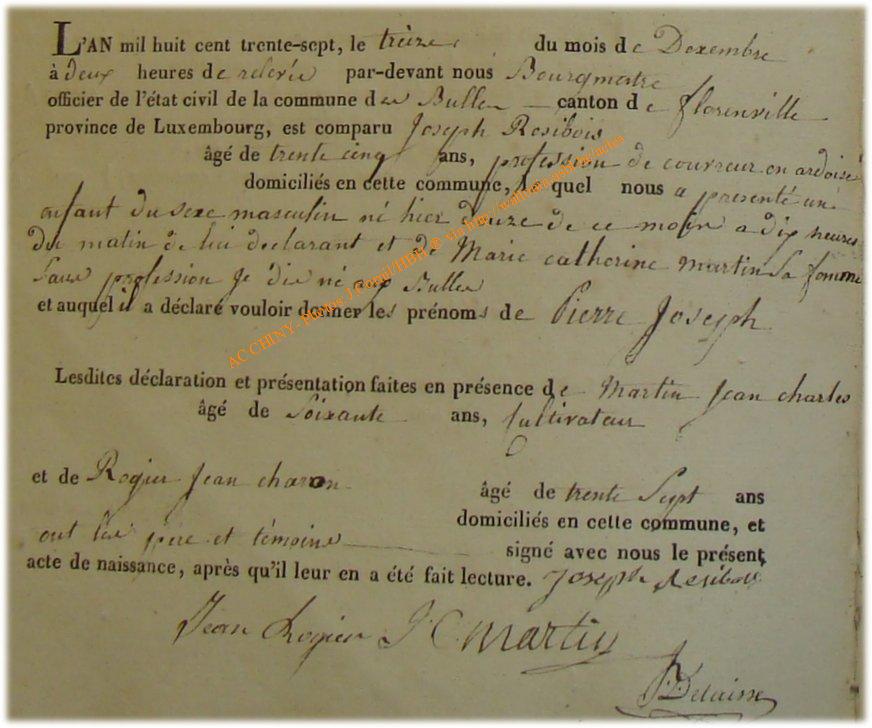 L'AN mil huit cent trente-sept, le treize du mois de Dexembre
à deux heures de relevée par-devant nous Bourgmestre
officier de l'état civil de la commune de Bulle canton de florenville
province de Luxembourg, est comparu Joseph Rosibois
âgé de trente cinq ans, profession de couvreur en ardoise
domiciliés en cette commune, le quel nous a presenté un
enfant du sexe masculin né hier douze de ce mois a dix heures
du matin de lui declarant et de Marie catherine martin sa femme
Sans profession Je dis né a Bulle
et auquel il a déclaré vouloir donner les prénoms de Pierre Joseph
Lesdites déclaration et présentation faites en présence de Martin Jean charles
âgé de Soixante ans, Cultivateur
et de Rogier Jean charon
âgé de trente Sept ans
domiciliés en cette commune, et
ont les père et témoins signé avec nous le présent
acte de naissance, après qu'il leur en a été fait lecture. Joseph Resibois
Jean Rogier J C martin
AC CHINY - Photos J.Comil/HBH @ via http://wallonia-asbl.org/actes